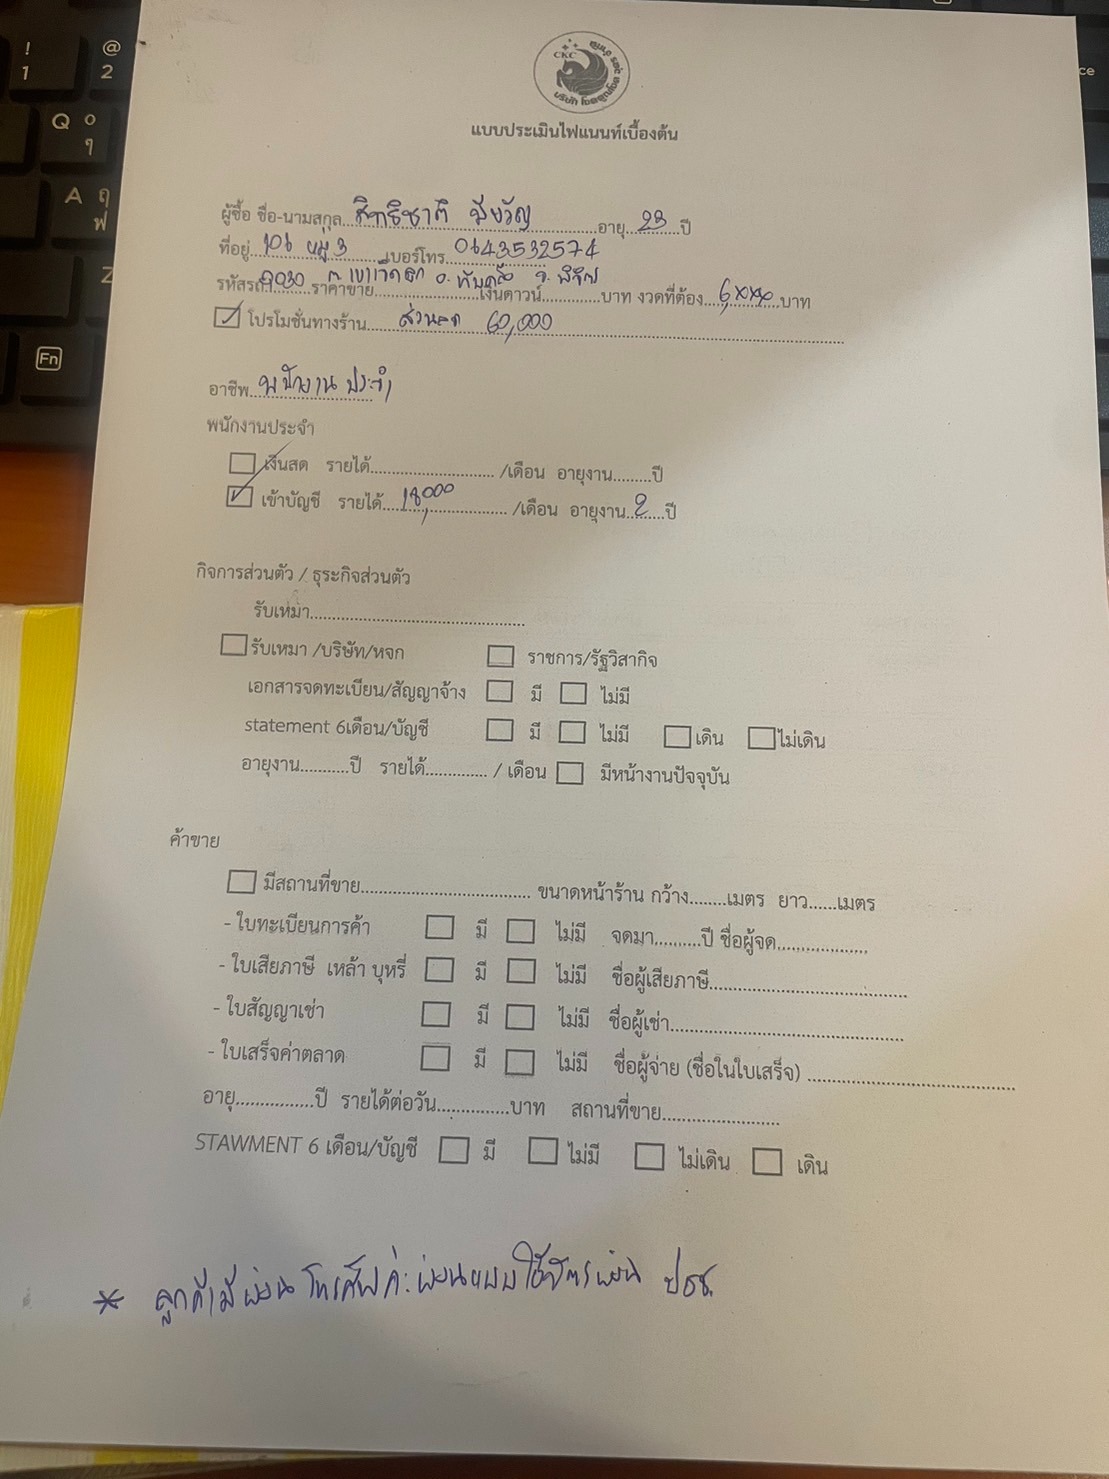 CKC
แบบประเมินไฟแนนท์เบื้องต้น
ผู้ซื้อ ชื่อ-นามสกุล สิทธิชาติ อายุ 23 ปี
ที่อยู่ 106 หมู่ 3 เบอร์โทร 0643532574
รหัสรถ ราคาขาย เงินดาวน์ บาท งวดที่ต้อง 6,xxx บาท
โปรโมชั่นทางร้าน ส่วนลด 60,000
อาชีพ พนักงานประจำ
พนักงานประจำ
เงินสด รายได้ /เดือน อายุงาน ปี
เข้าบัญชี รายได้ 18,000 /เดือน อายุงาน 2 ปี
กิจการส่วนตัว / ธุระกิจส่วนตัว
รับเหม่า
รับเหมา /บริษัท/หจก ราชการ/รัฐวิสากิจ
เอกสารจดทะเบียน/สัญญาจ้าง มี ไม่มี
statement 6เดือน/บัญชี มี ไม่มี เดิน ไม่เดิน
อายุงาน ปี รายได้ / เดือน มีหน้างานปัจจุบัน
ค้าขาย
มีสถานที่ขาย ขนาดหน้าร้าน กว้าง เมตร ยาว เมตร
- ใบทะเบียนการค้า มี ไม่มี จดมา ปี ชื่อผู้จด
- ใบเสียภาษี เหล้า บุหรี่ มี ไม่มี ชื่อผู้เสียภาษี
- ใบสัญญาเช่า มี ไม่มี ชื่อผู้เช่า
- ใบเสร็จค่าตลาด มี ไม่มี ชื่อผู้จ่าย (ชื่อในใบเสร็จ)
อายุ ปี รายได้ต่อวัน บาท สถานที่ขาย
STAWMENT 6 เดือน/บัญชี มี ไม่มี ไม่เดิน เดิน
* ลูกค้ามีผ่อนโทรศัพค่ะ ผ่อนแบบใช้บัตรผ่อน ปชช.